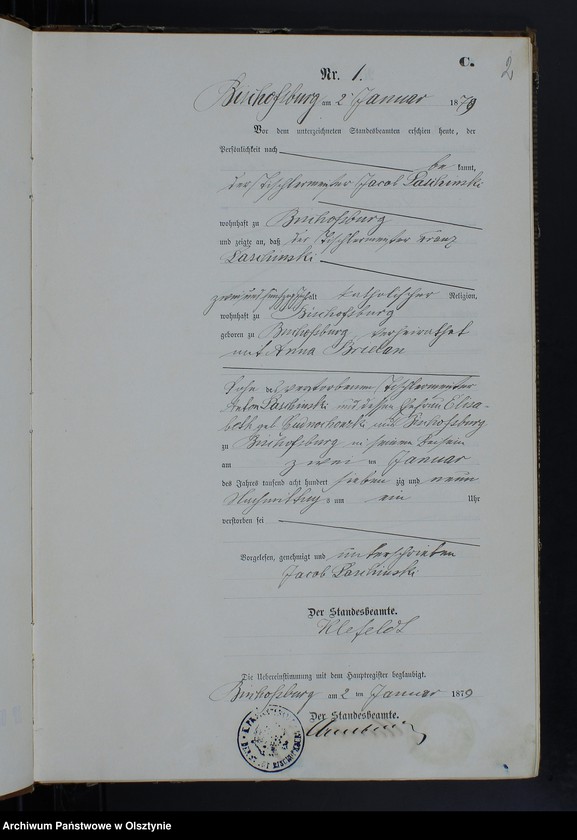 C.
2
Nr. 1.
Bischofsburg am 2 Januar 1879
Vor dem unterzeichneten Standesbeamten erschien heute, der
Persönlichkeit nach
be kannt,
der Tischlermeister Jacob
wohnhaft zu Bischofsburg
und zeigte an, daß der Tischlermeister Franz
zweiundfünfzig Jahr alt katholischer Religion,
wohnhaft zu Bischofsburg
geboren zu Bischofsburg verheirathet
mit Anna
Sohn des verstorbenen Tischlermeister
Anton und dessen Ehefrau Elisa-
beth geb. Bischofsburg
zu Bischofsburg in seinem Beisein
am zwei ten Januar
des Jahres tausend acht hundert sieben zig und neun
Nachmittags um ein Uhr
verstorben sei
Vorgelesen, genehmigt und unterschrieben
Jacob
Der Standesbeamte.
Klefeldt
Die Uebereinstimmung mit dem Hauptregister beglaubigt.
Bischofsburg am 2 ten Januar 1879
Der Standesbeamte.
Archiwum Państwowe w Olsztynie